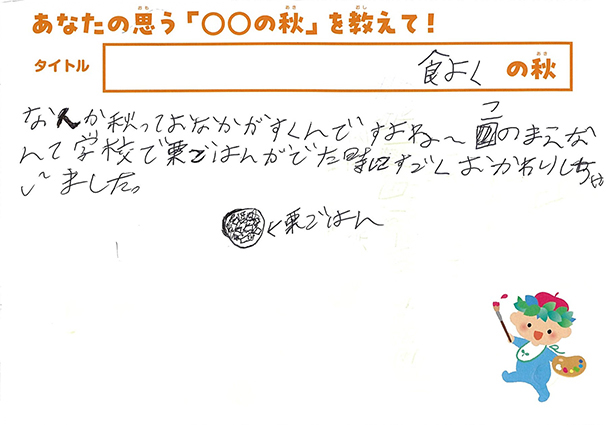 あなたの思う「〇〇の秋」を教えて!
おも あき おし
タイトル 食よく の秋
あき
なんか秋っておなかがすくんですよね〜 このまえな
んて学校で栗ごはんがでた時にすごくおかわりしちゃ
いました。
<栗ごはん